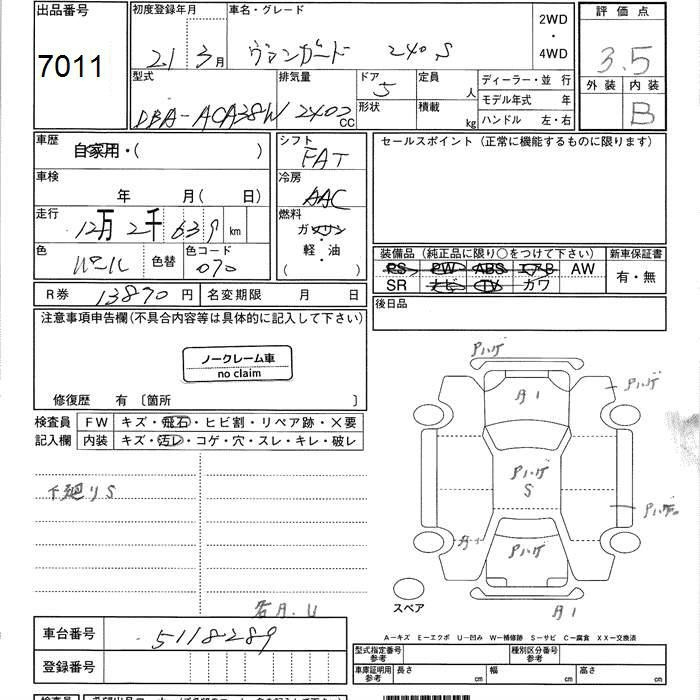 出品番号 初度登録年月 車名・グレード 2WD ・ 4WD 評価点
7011 21 3月 ヴァンガード 240.S 3.5
外装 内装
B
型式 排気量 ドア 定員 ディーラー・並 行
DBA-ACA38W 2400 cc 5 人 モデル年式 年
形状 積載 kg ハンドル 左・右
車歴 自家用・( ) シフト FAT セールスポイント (正常に機能するものに限ります)
車検 年 月(日) 冷房 AAC
走行 12万2千639 km 燃料 ガソリン・軽・油 ( )
色 パール 色替 色コード 070
装備品 (純正品に限り○をつけて下さい) 新車保証書
PS PW ABS エアB AW 有・無
SR ナビ TV カワ
R券 13870 円 名変期限 月 日 後日品
注意事項申告欄(不具合内容等は具体的に記入して下さい)
ノークレーム車
no claim
修復歴 有 〔箇所 〕
検査員 FW キズ・飛石・ヒビ割・リペア跡・×要
記入欄 内装 キズ・汚レ・コゲ・穴・スレ・キレ・破レ
Pハゲ
A1 Pハゲ
下廻りS
Pハゲ
S
Pハゲ
Pハゲ
スペア A1
若A.U
A-キズ E-エクボ U-凹み W-補修跡 S-サビ C-腐食 XX-交換済
車台番号 5118289
登録番号
型式指定番号 参考 種別区分番号 参考
車庫証明用 参考 長さ cm 幅 cm 高さ cm